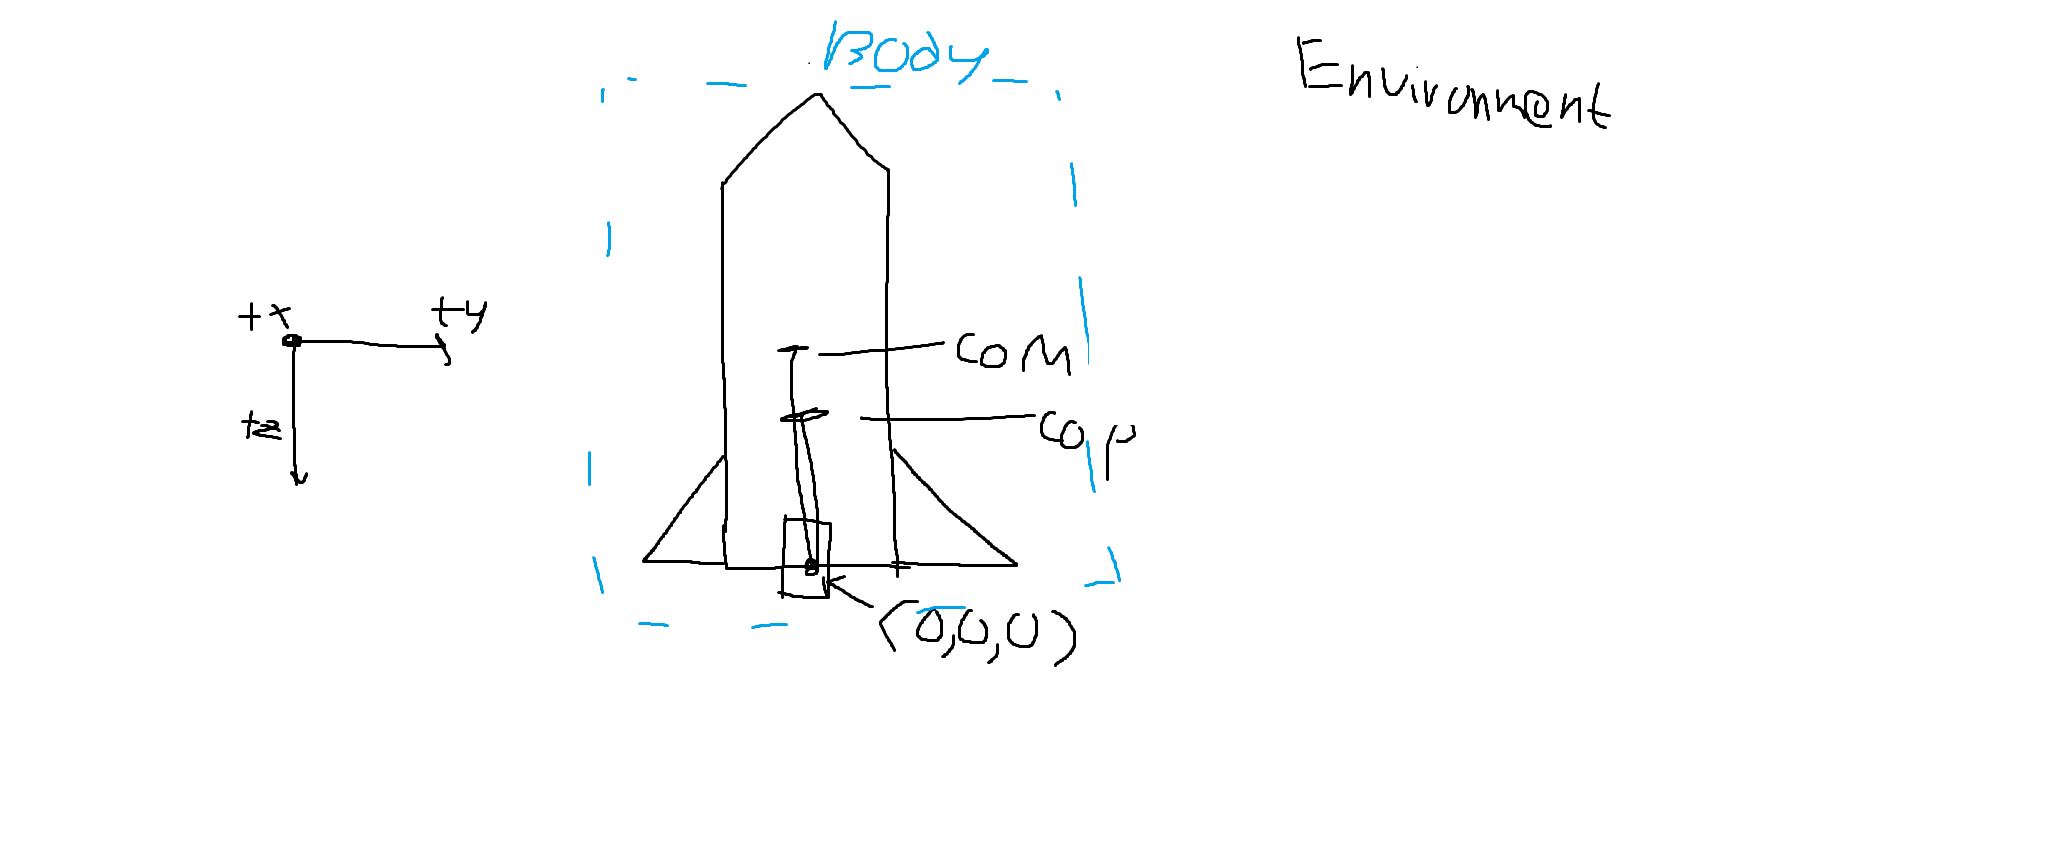 Body
Environment
+x
+y
+z
COM
COP
(0,0,0)